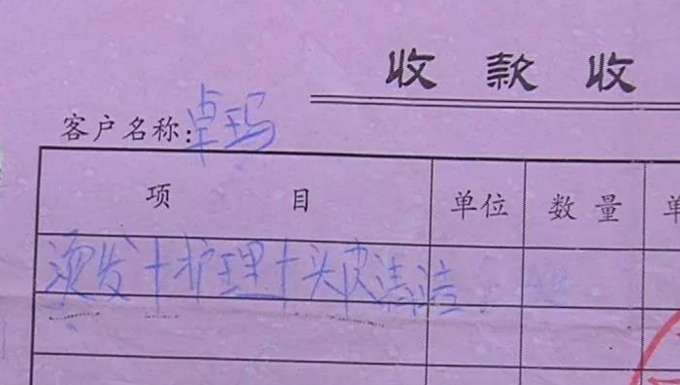 收款收
客户名称：卓玛
项目 单位 数量 单
烫发+护理+头皮清洁